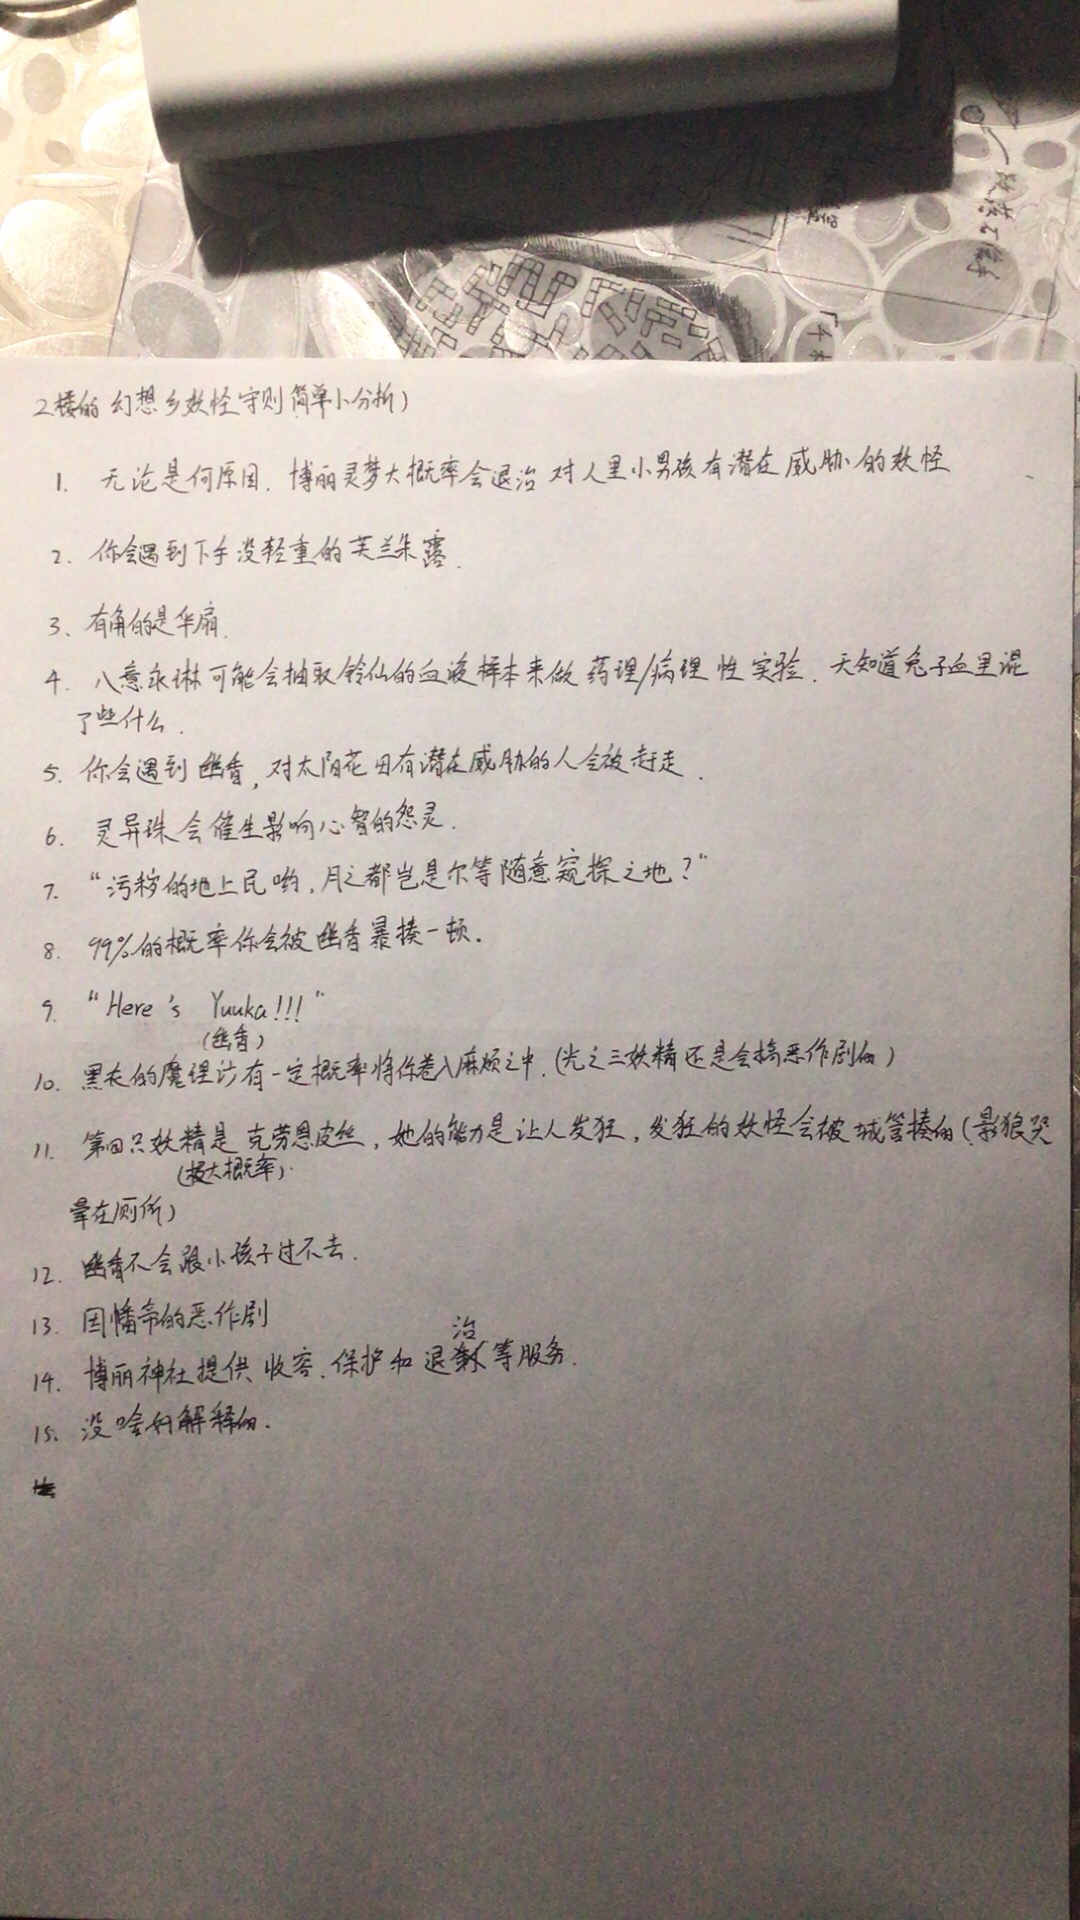 2楼的 幻想乡妖怪守则简单小分析)
1. 无论是何原因, 博丽灵梦大概率会退治 对人里小男孩有潜在威胁的妖怪
2. 你会遇到下手没轻重的芙兰朵露.
3. 有角的是华扇.
4. 八意永琳可能会抽取铃仙的血液样本来做 药理/病理性实验. 天知道兔子血里混
了些什么.
5. 你会遇到幽香, 对太阳花田有潜在威胁的人会被赶走.
6. 灵异珠会催生影响心智的怨灵.
7. “污秽的地上民哟, 月之都岂是尔等随意窥探之地?”
8. 99%的概率你会被幽香暴揍一顿.
9. “Here's Yuuka!!!”
(幽香)
10. 黑衣的魔理沙有一定概率将你卷入麻烦之中. (光之三妖精还是会搞恶作剧的)
11. 第四只妖精是克劳恩皮丝, 她的能力是让人发狂, 发狂的妖怪会被城管揍的(影狼哭
(极大概率)
晕在厕所)
12. 幽香不会跟小孩子过不去.
13. 因幡帝的恶作剧
14. 博丽神社提供 收容、保护和退治等服务.
15. 没啥好解释的.